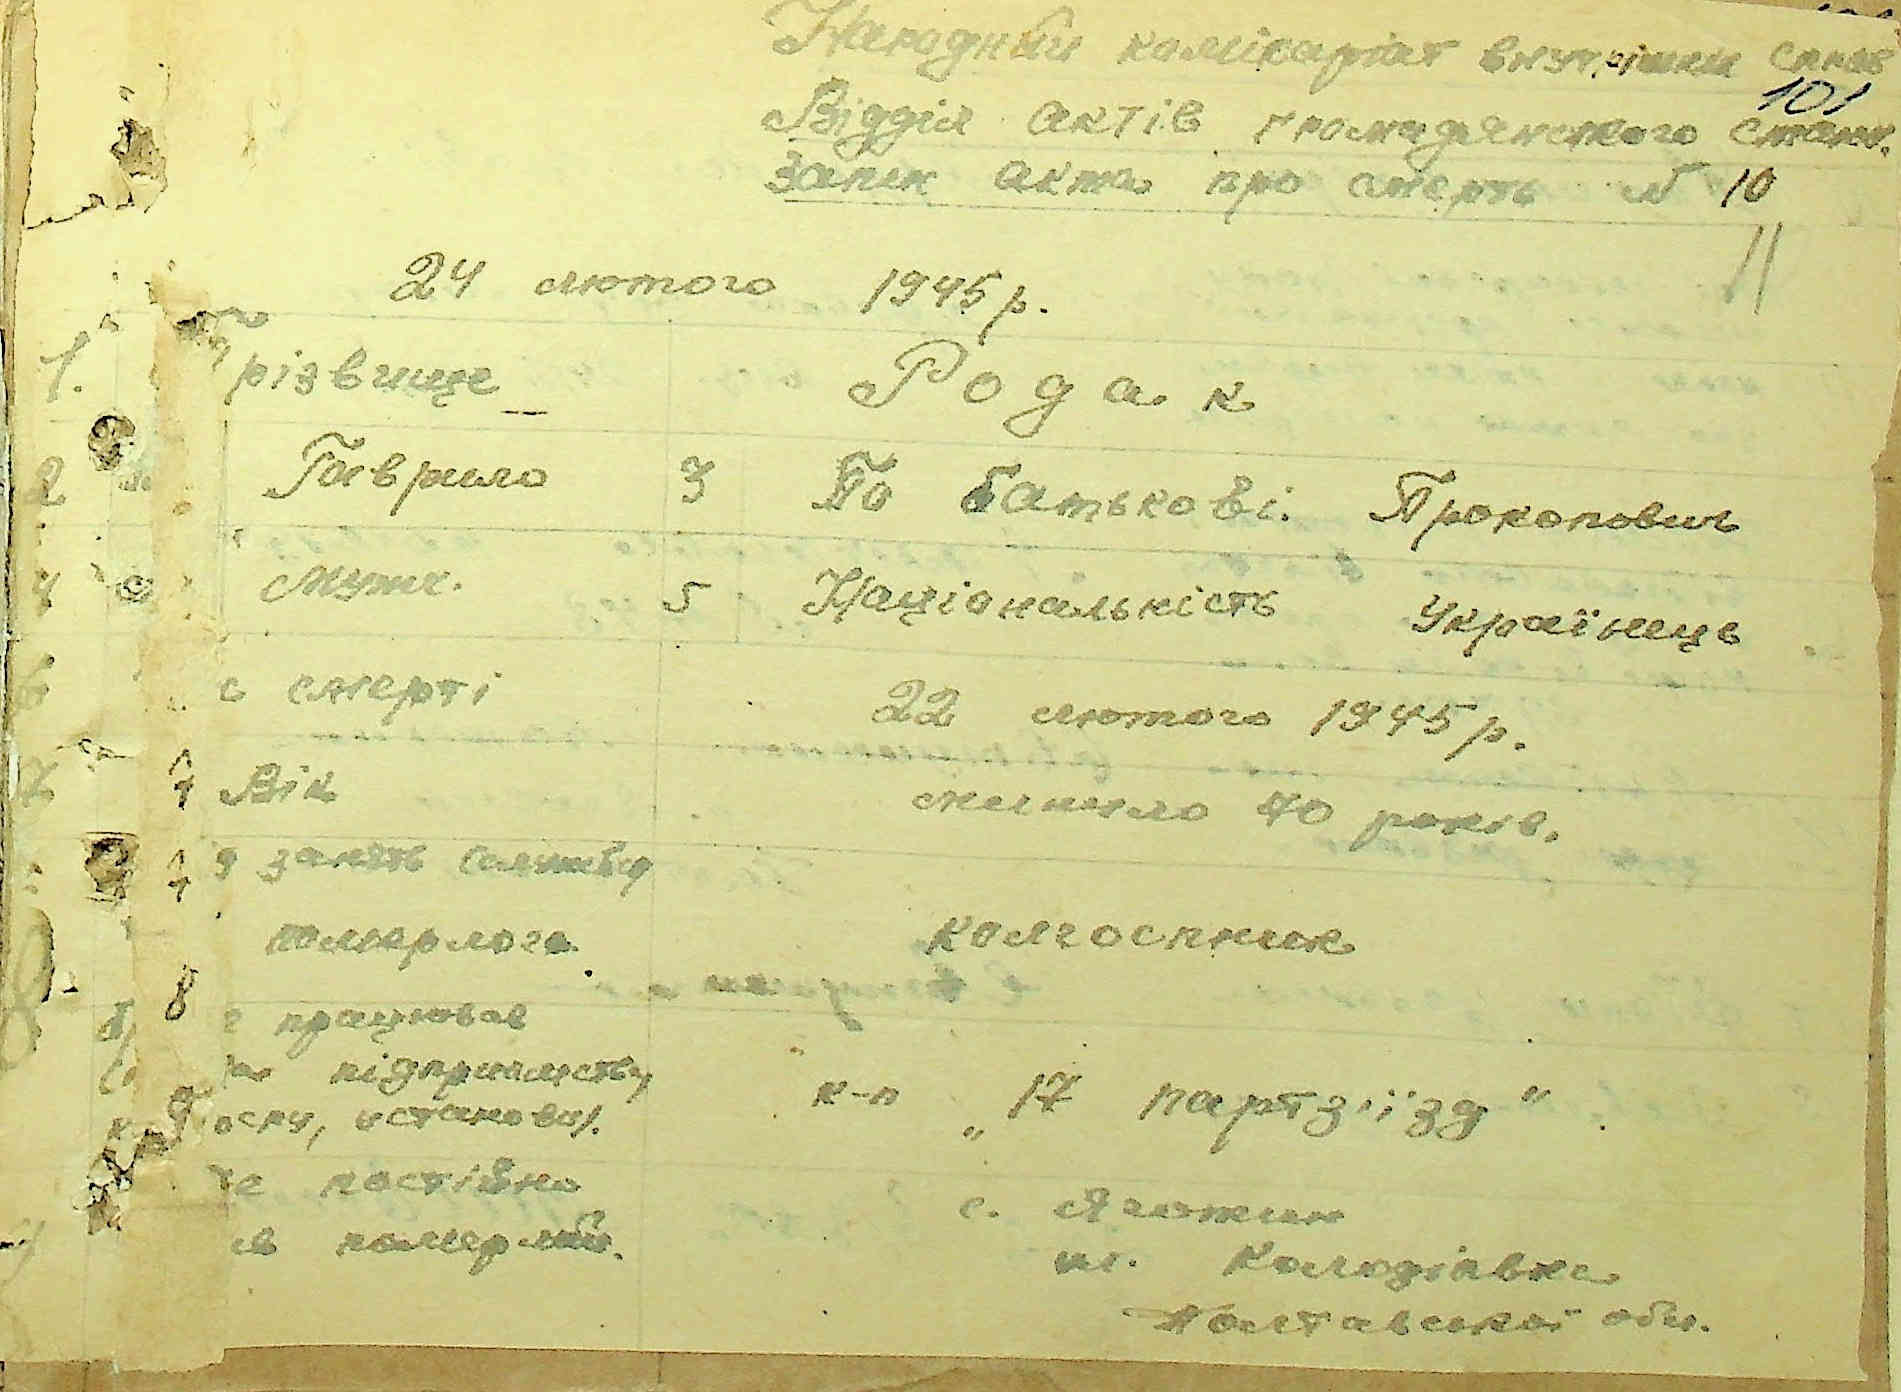 Народний комісаріат внутрішніх справ
101
Відділ актів громадянського стану.
Запис акта про смерть № 10
24 лютого 1945 р.
1. різвище Родак
2 Гаврило 3 По батькові. Прокопович
4 Мужч. 5 Національність Українець
6 ь смерті 22 лютого 1945 р.
7 Вік минуло 70 років.
занять служба
померлого колгоспник
8 е працював
підприємству к-п „17 партз'їзд“.
оспу, установи).
е постійно с. Яготин
ив померлий. Колодіївка
Полтавської обл.